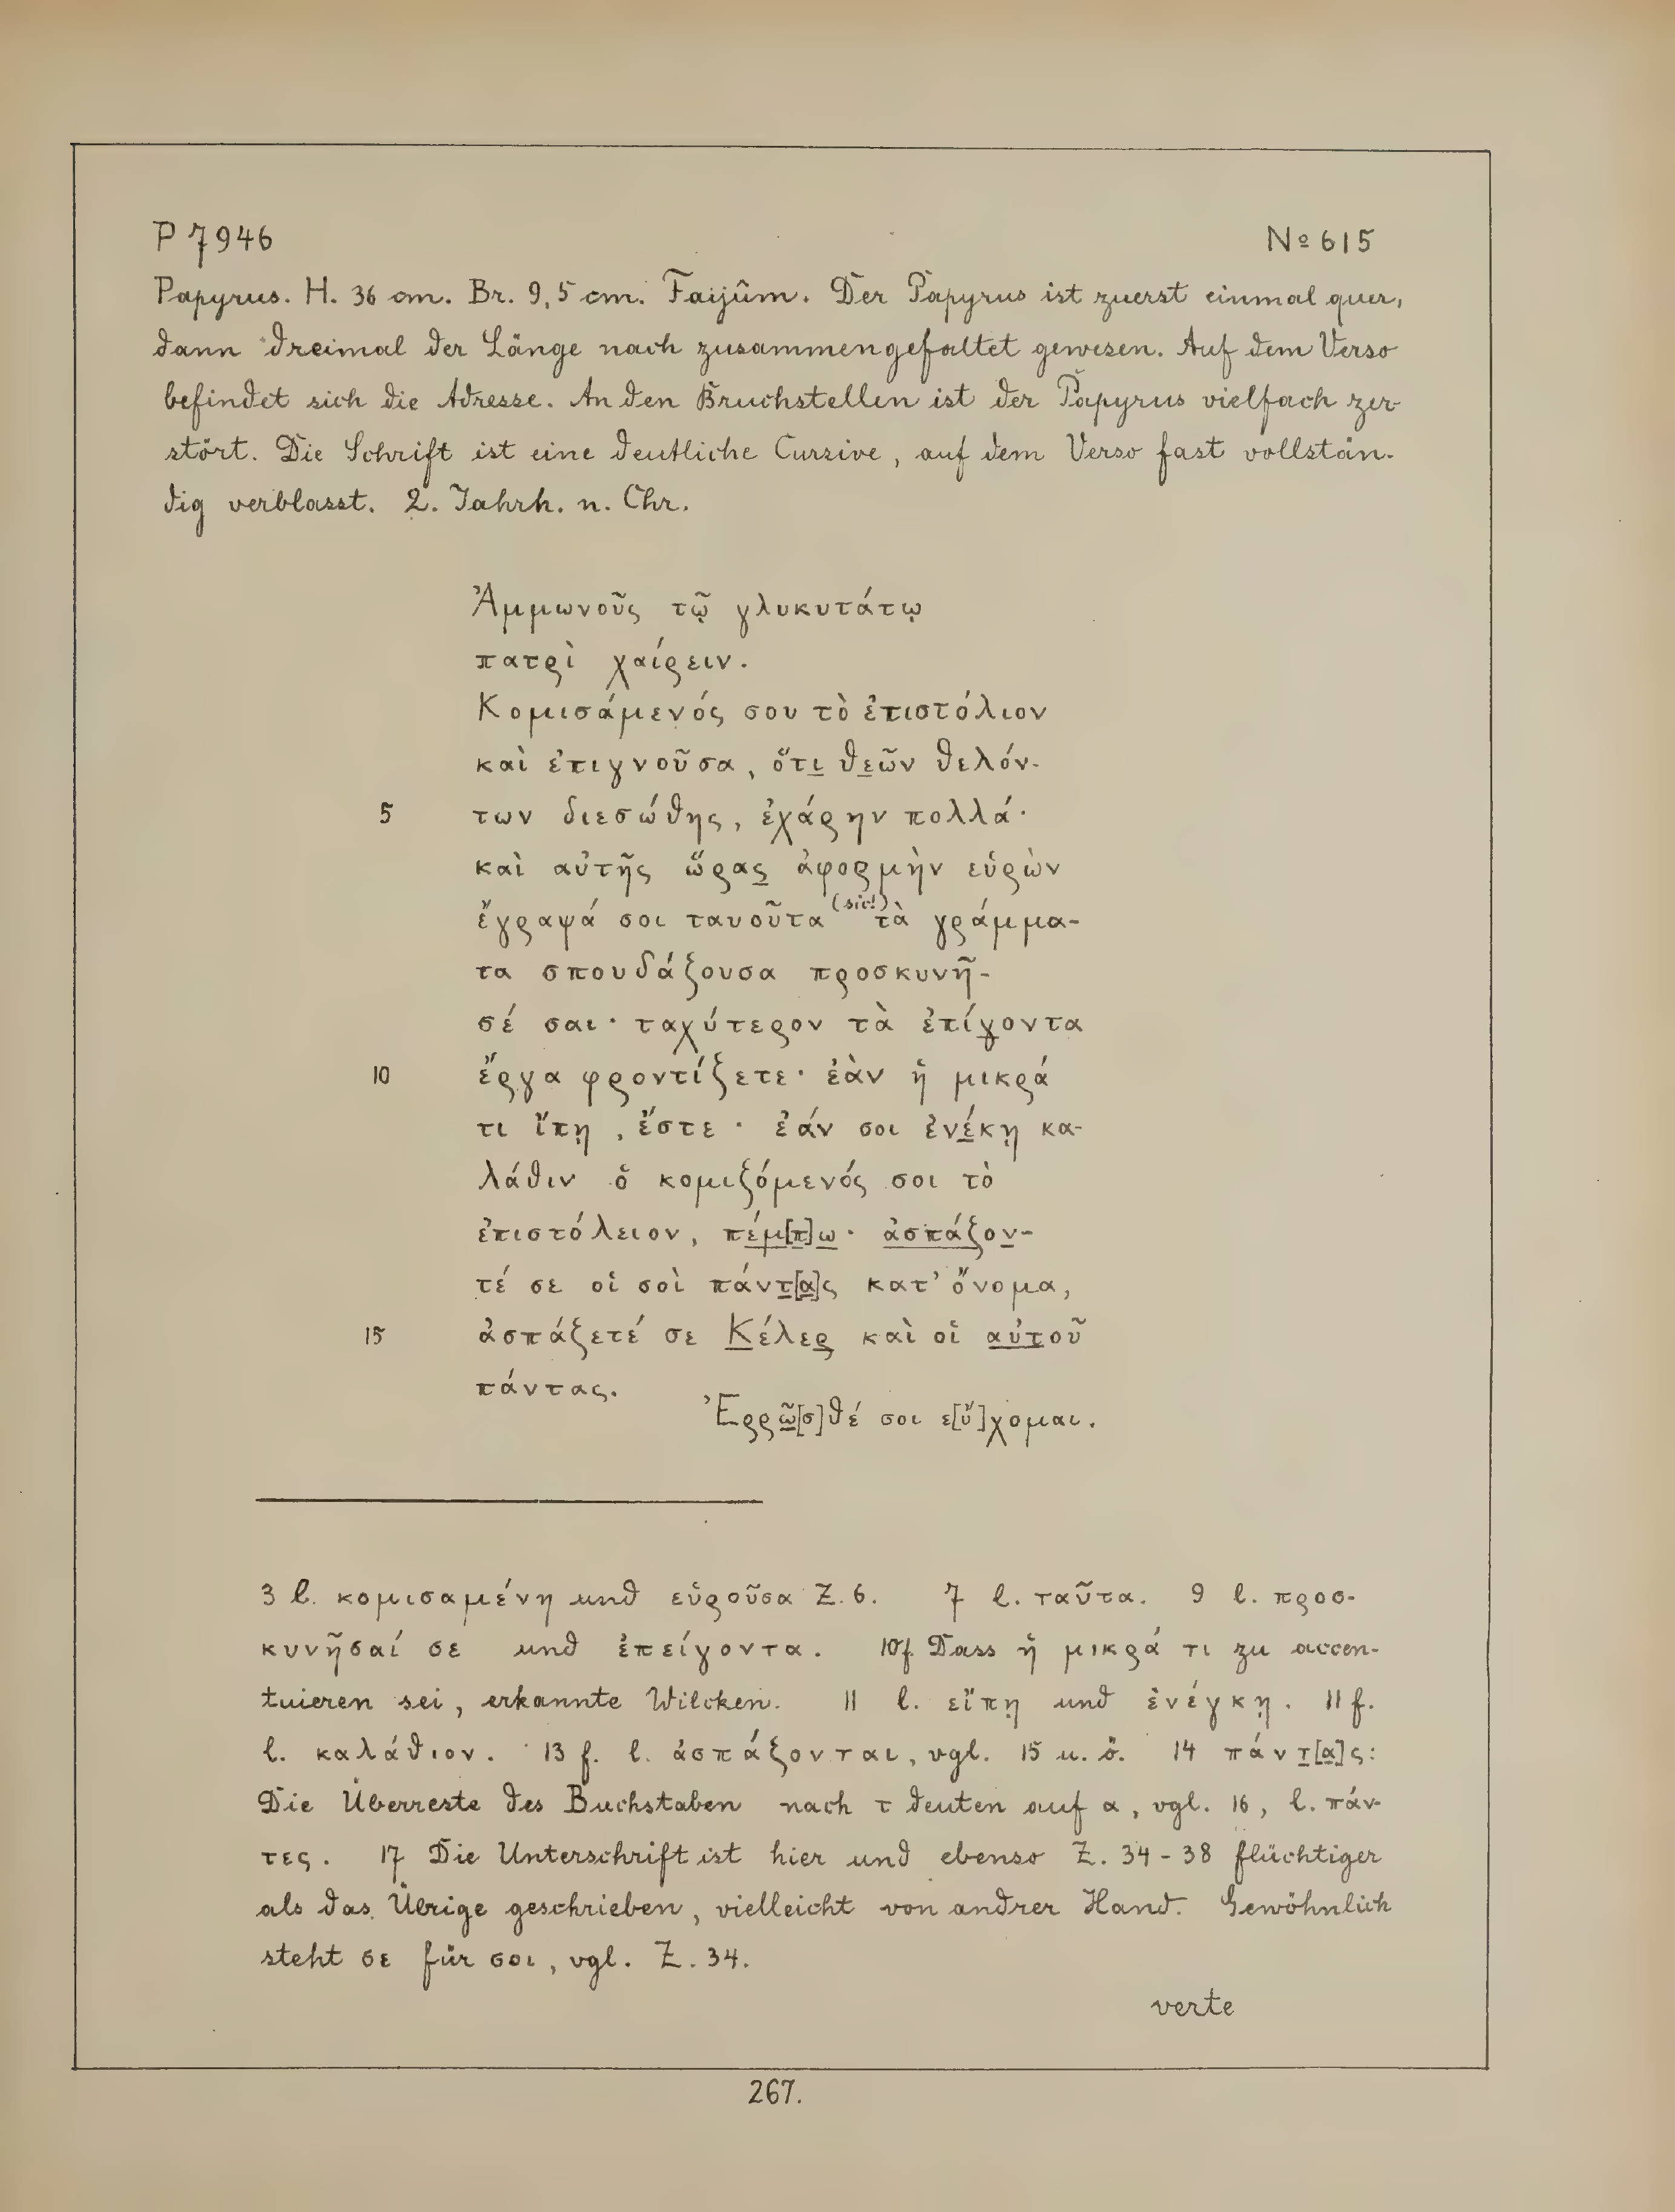 P 7946 № 615
Papyrus. H. 36 cm. Br. 9,5 cm. Faijûm. Der Papyrus ist zuerst einmal quer,
dann dreimal der Länge nach zusammengefaltet gewesen. Auf dem Verso
befindet sich die Adresse. An den Bruchstellen ist der Papyrus vielfach zer-
stört. Die Schrift ist eine deutliche Cursive, auf dem Verso fast vollstän-
dig verblasst. 2. Jahrh. n. Chr.
Ἀμμωνοῦς τῷ γλυκυτάτῳ
πατρὶ χαίρειν.
Κομισάμενός σου τὸ ἐπιστόλιον
καὶ ἐπιγνοῦσα, ὅτι̲ θε̲ῶν θελόν-
5 των διεσώθης, ἐχάρην πολλά·
καὶ αὐτῆς ὥρας̲ ἀφορμὴν εὑρὼν
ἔγραψά σοι ταυοῦτα (sic!) τὰ γράμμα-
τα σπουδάζουσα προσκυνῆ-
σέ σαι· ταχύτερον τὰ ἐπίγ̲οντα
10 ἔργα φροντίζετε· ἐὰν ἡ μικρά
τι ἴπῃ, ἔστε· ἐάν σοι ἐνέ̲κῃ κα-
λάθιν ὁ κομιζόμενός σοι τὸ
ἐπιστόλειον, πέ̲μ̲[π̲]ω̲· ἀ̲σ̲π̲ά̲ζ̲ον̲-
τέ σε οἱ σοὶ πάντ̲[α̲]ς κατ’ ὄνομα,
15 ἀσπάζετέ σε Κ̲έλερ̲ καὶ οἱ α̲ὐ̲τ̲οῦ
πάντας.
Ἐρρῶ̲[σ]θέ σοι ε[ὔ]χομαι.
3 l. κομισαμένη und εὑροῦσα Z. 6. 7 l. ταῦτα. 9 l. προσ-
κυνῆσαί σε und ἐπείγοντα. 10f. Dass ἡ μικρά τι zu accen-
tuieren sei, erkannte Wilcken. 11 l. εἴπῃ und ἐνέγκῃ. 11 f.
l. καλάθιον. 13 f. l. ἀσπάζονται, vgl. 15 u. ö. 14 πάντ̲[α̲]ς:
Die Überreste des Buchstaben nach τ deuten auf α, vgl. 16, l. πάν-
τες. 17 Die Unterschrift ist hier und ebenso Z. 34-38 flüchtiger
als das Übrige geschrieben, vielleicht von andrer Hand. Gewöhnlich
steht σε für σοι, vgl. Z. 34.
verte
267.